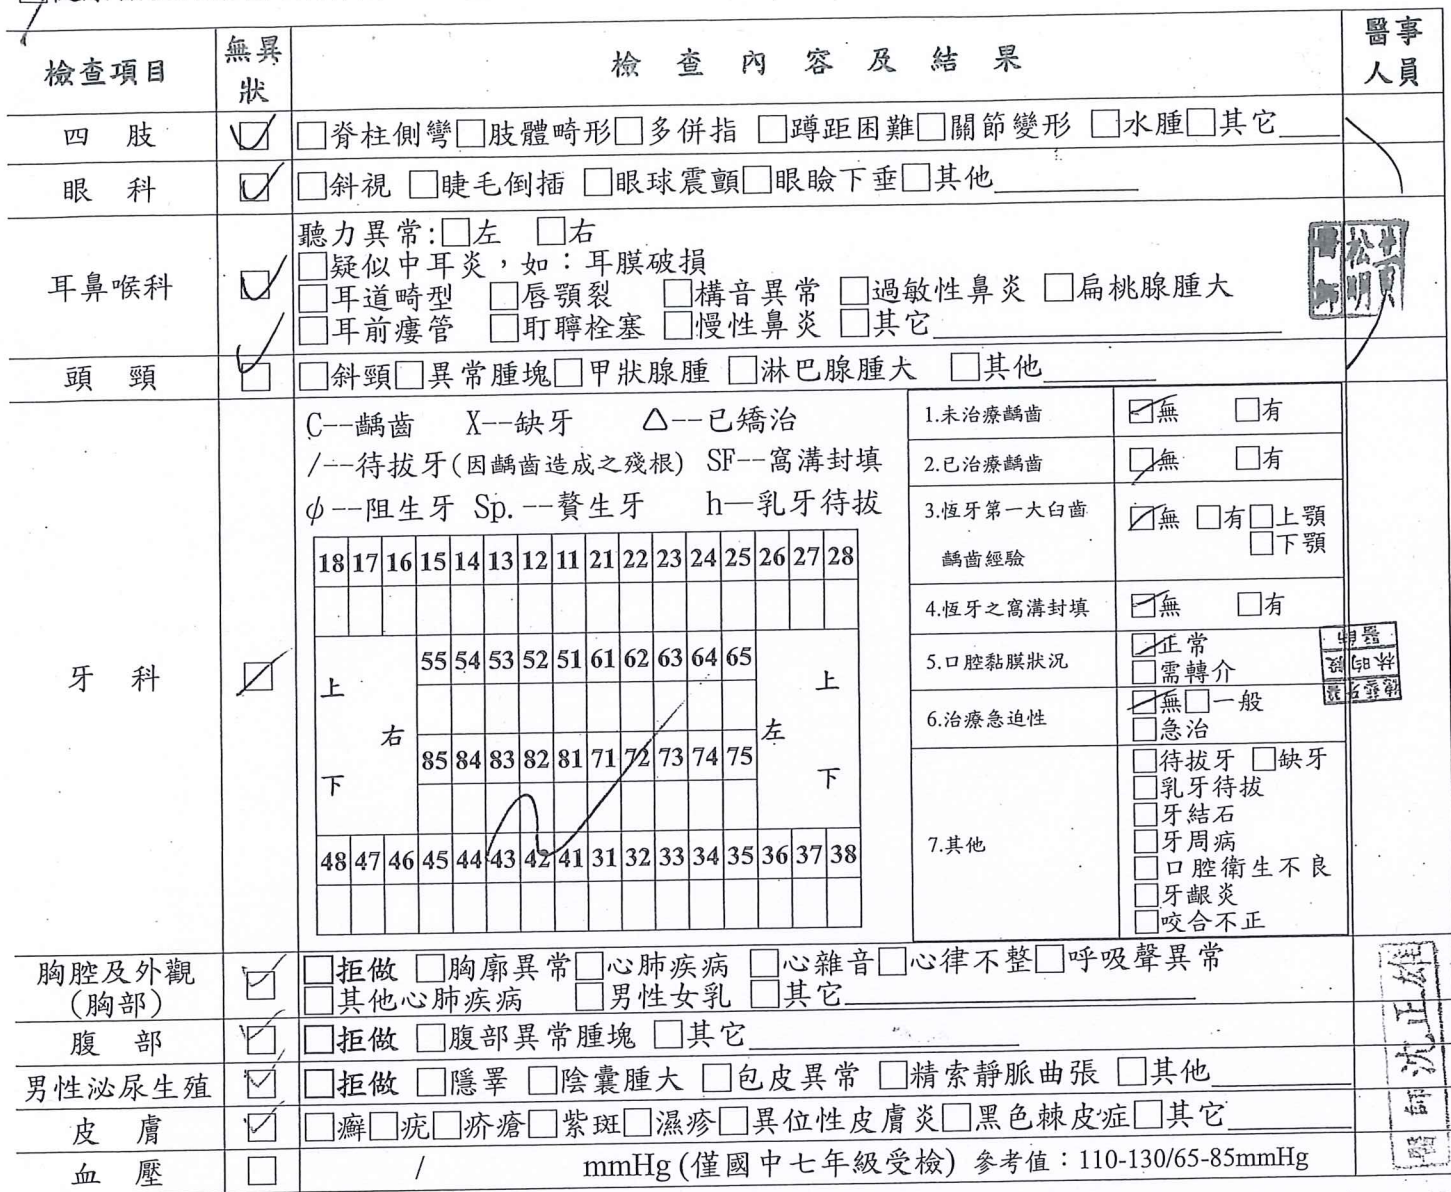 檢查項目 無異狀 檢查內容及結果 醫事人員
四肢 ☑ □脊柱側彎□肢體畸形□多併指 □蹲距困難□關節變形 □水腫□其它____
眼科 ☑ □斜視 □睫毛倒插 □眼球震顫□眼瞼下垂□其他________
耳鼻喉科 ☑ 聽力異常:□左 □右
□疑似中耳炎，如：耳膜破損
□耳道畸型 □唇顎裂 □構音異常 □過敏性鼻炎 □扁桃腺腫大
□耳前瘻管 □耵聹栓塞 □慢性鼻炎 □其它________
黃松明醫師
頭頸 ☑ □斜頸□異常腫塊□甲狀腺腫 □淋巴腺腫大 □其他________
牙科 ☑
C--齲齒 X--缺牙 △--已矯治
/--待拔牙(因齲齒造成之殘根) SF--窩溝封填
φ--阻生牙 Sp.--贅生牙 h—乳牙待拔
18 17 16 15 14 13 12 11 21 22 23 24 25 26 27 28
55 54 53 52 51 61 62 63 64 65
上 右 下 上 左 下
85 84 83 82 81 71 72 73 74 75
48 47 46 45 44 43 42 41 31 32 33 34 35 36 37 38
1.未治療齲齒 ☑無 □有
2.已治療齲齒 ☑無 □有
3.恆牙第一大臼齒 ☑無 □有□上顎
齲齒經驗 □下顎
4.恆牙之窩溝封填 ☑無 □有
5.口腔黏膜狀況 ☑正常
□需轉介
6.治療急迫性 ☑無□一般
□急治
7.其他 □待拔牙 □缺牙
□乳牙待拔
□牙結石
□牙周病
□口腔衛生不良
□牙齦炎
□咬合不正
胸腔及外觀(胸部) ☑ □拒做 □胸廓異常□心肺疾病 □心雜音□心律不整□呼吸聲異常
□其他心肺疾病 □男性女乳 □其它________
腹部 ☑ □拒做 □腹部異常腫塊 □其它________
男性泌尿生殖 ☑ □拒做 □隱睪 □陰囊腫大 □包皮異常 □精索靜脈曲張 □其他________
皮膚 ☑ □癬□疣□疥瘡□紫斑□濕疹□異位性皮膚炎□黑色棘皮症□其它________
血壓 □ / mmHg (僅國中七年級受檢) 參考值：110-130/65-85mmHg
醫師 沈正雄